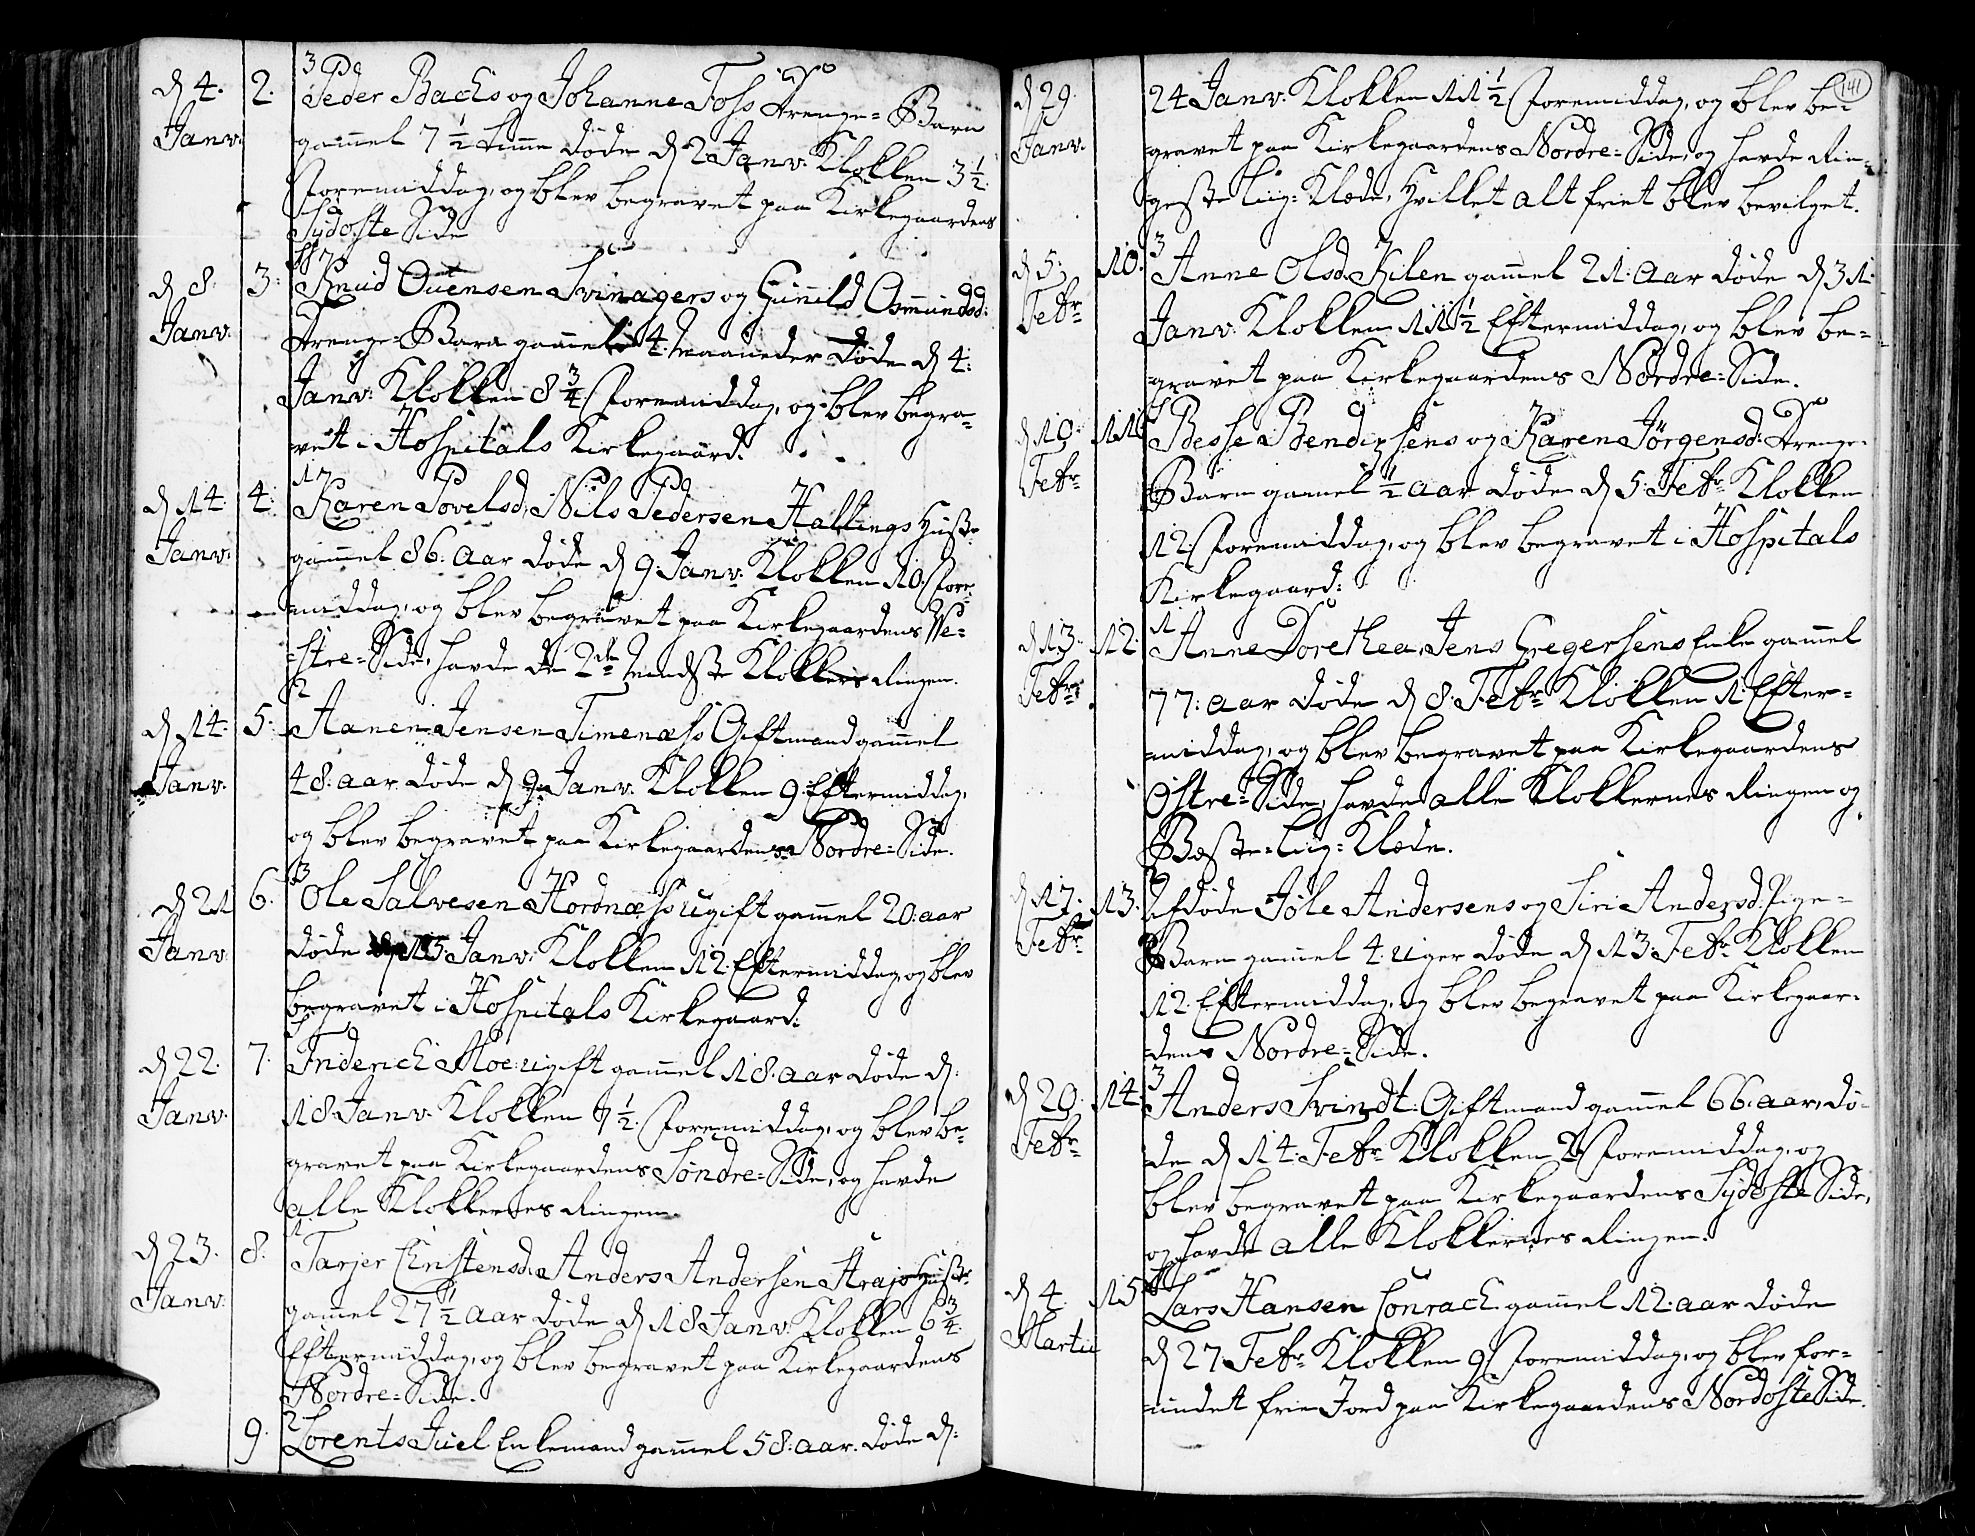 d 4. 2. 3
Janv: Peder Bachs og Johanne Foss Drenge=Barn
gammel 7 1/2 time døde d 2 Janv: Klokken 3 1/2
Foremiddag, og blev begravet paa Kirkegaardens
Sydoste Side
d 8. 3. Knud Ouensen Svinagers og Gunnild Osmundsd:
Janv: Drenge=Barn gammel 4 Maaneder døde d 4:
Janv: Klokken 8 3/4 Foremiddag, og blev begra=
vet i Hospitals Kirkegaard.
17
d 14. 4. Karen Povelsd, Nils Pedersen Hallings Hustr
Janv: gammel 86. aar døde d 9 Janv: Klokken 10 Fore=
middag, og blev begravet paa Kirkegaardens We=
stre=Side, havde de 2de mindste Klokkers Ringen.
2
d 14. 5. Aanen Jensen Timenæss Giftmand gammel
Janv. 48. aar døde d 9 Janv. Klokken 9. Eftermiddag,
og blev begravet paa Kirkegaardens Nordre=Side.
3
d 21 6. Ole Salvesen Hordnæss ugift gammel 20. aar
Janv: døde d 15 Janv: Klokken 12. Eftermiddag og blev
begravet i Hospitals Kirkegaard:
d 22. 7. Friderich Moe ugift gammel 18. aar døde d.
Janv: 18 Janv: Klokken 7 1/2. Foremiddag, og blev be=
gravet paa Kirkegaardens Söndre=Side, og havde
alle Klokkernes Ringen.
1
d 23. 8. Tarjer Christensd. Anders Andersen Hustr.
Janv: gammel 27 1/2 aar døde d 18 Janv: Klokken 6 3/4.
Eftermiddag, og blev begravet paa Kirkegaardens
Nordre=Side.
2
9. Lorents Juel Enkemand gammel 58. aar. døde d.
141
d 29. 24 Janv: Klokken 11 1/2 Foremiddag, og blev be=
Janv. gravet paa Kirkegaardens Nordre=Side, og havde Rin=
geste Liig=Klæde, hvilket alt friet blev bevilget.
3
d 5. 10. Anne Olsd. Kilen gammel 21. Aar døde d 31.
Febr Janv: Klokken 11 1/2 Eftermiddag, og blev be=
gravet paa Kirkegaardens Nordre=Side.
d 10. 11. Besse Bendixsens og Karen Jørgensd: Drenge=
Febr Barn gammel 1/2 aar døde d 5. Febr Klokken
12 Foremiddag, og blev begravet i Hospitals
Kirkegaard:
1
d 13. 12. Anne Dorethea, Jens Gregersens Enke gammel
Febr. 77. aar døde d 8. Febr Klokken 1. Efter=
middag, og blev begravet paa Kirkegaardens
Østre=Side, havde alle Klokkernes Ringen og
Bæste=Liig=Klæde.
d 17. 13. Afdøde Jøle Andersens og Siri Andersd: Pige=
Febr Barn gammel 4. uger døde d 13. Febr Klokken
12. Eftermiddag, og blev begravet paa Kirkegaar=
dens Nordre=Side.
3
d 20. 14. Anders Svindt Giftmand gammel 66. aar, dø=
Febr de d 14. Febr Klokken 2 Foremiddag, og
blev begravet paa Kirkegaardens Sydoste Side,
og havde alle Klokkernes Ringen.
d 4. 15. Lars Hansen Conrach gammel 12. aar døde
Martii d 27 Febr Klokken 9 Foremiddag, og blev for=
undet frie Jord paa Kirkegaardens Nordoste Side.